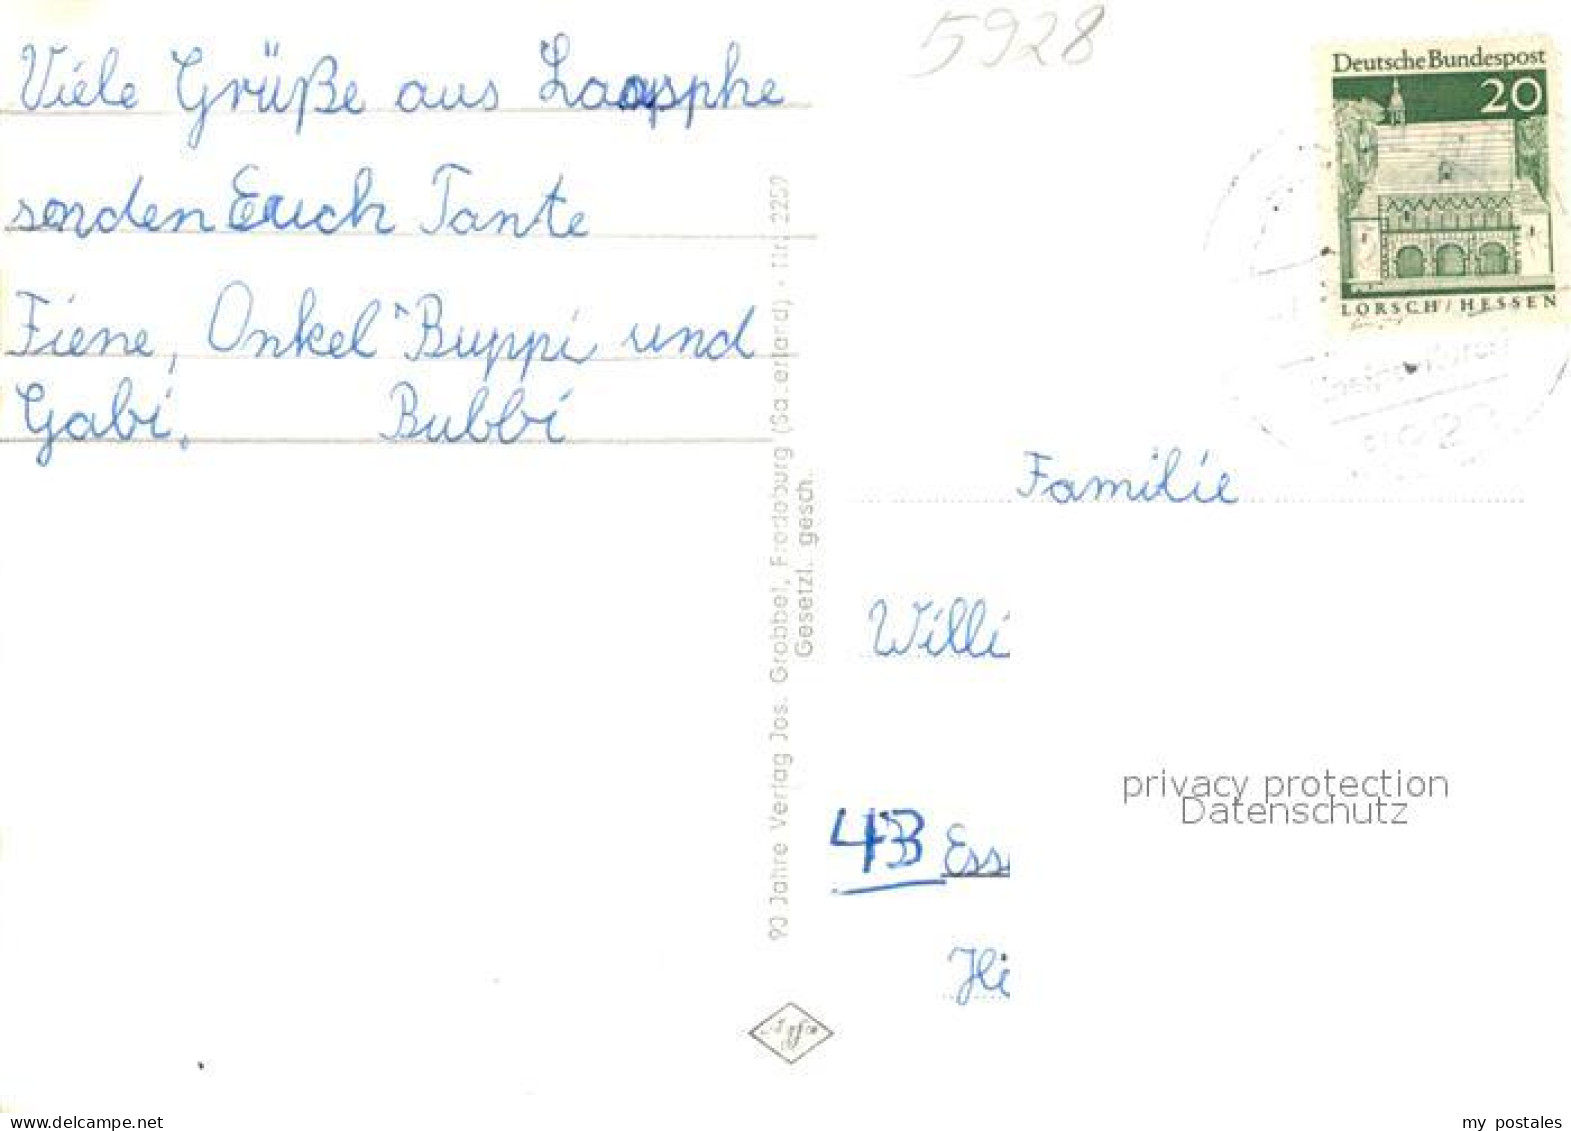 5928
Viele Grüße aus Laasphe
senden Euch Tante
Fiene, Onkel Buppi und
Gabi. Bubbi
90 Jahre Verlag Jos. Grobbel, Fredeburg (Sauerland) · Nr. 2259
Gesetzl. gesch.
Deutsche Bundespost
20
LORSCH / HESSEN
Familie
Willi
43 Ess
Hi
privacy protection
Datenschutz
Agfa
www.delcampe.net
my_postales